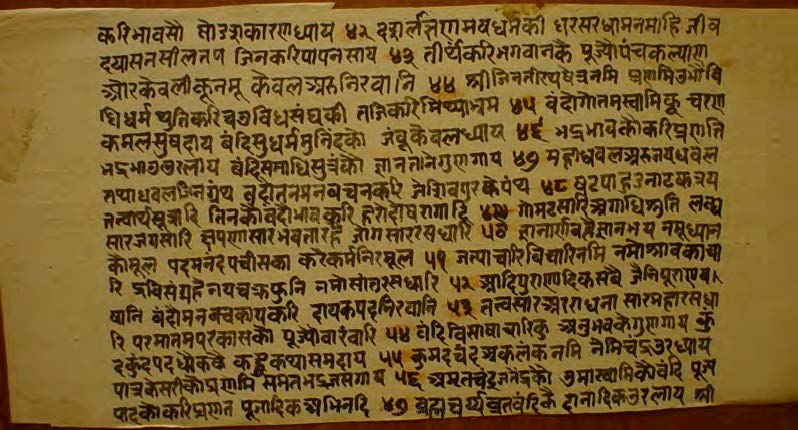 करिभावसौ षोडशकारणध्याय ४२ दशलक्षणमयधर्मकौ धरसरधामनमाहि जीव
दयासतसीलतप जिनकरिपापनसाय ४३ तीर्थंकरिभगवानकै पूज्यौपंचकल्याण
औरकेवलीकूनमू केवलअरुनिरवानि ४४ श्रीजिनतीरथक्षेत्रनमि प्रणमिउभौवि
धिधर्म थुतिकरिचतुविधसंघकी तजिकरिमिथ्याभ्रम ४५ वंदौगोतमस्वामिकू चरण
कमलसुषदाय वंदिसुधर्ममुनिंदकौ जंबूकेवलध्याय ४६ भद्रभावकौकरिप्रणति
भद्रभावउरलाय वंदिसमाधिसुतंत्रकौ ज्ञानतनेगुणगाय ४७ महाधवलअरुजयधवल
तथाधवलजिनग्रंथ वंदौतनमनवचनकरि जेशिवपुरकेपंथ ४८ षटपाहुडनाटकत्रय
तत्वार्थसूत्रादि तिनकौवंदौभावकरि हरौदोषरागादि ४९ गोमटसारिअगाधिश्रुति लब्धि
सारजयसारि क्षपणासारभवतारहै जोगसाररसधारि ५० ज्ञानार्णवहैज्ञानमय नमूध्यान
कौमूल पदमनंदपचीसका करैकर्मनिरमूल ५१ जत्याचारविचारिनमि नमौश्रावकाचा
रि द्रविसंग्रहैनयचक्रफुनि नमौसांतरसधारि ५२ आदिपुराणादिकसबै जैनिपुराणव
षानि वंदौमनवचकायकरि दायकपदनिरवानि ५३ तत्वसारआराधना सारमहारसधा
रि परमातमपरकासकौ पूज्यौवारंवारि ५४ वंदिविसाषाचारिकु अनुभवकैगुणगाय कु
दकुंदपदध्यौकवै कहुकथासमदाय ५५ कुमदचंदअकलंकनमि नेमिचंदउरध्याय
पात्रकेसरीकौप्रणमि समतभद्रजसगाय ५६ अमतचंदजतिंदकौ उमास्वामिकौवंदि पूज्य
पादकौकरिप्रणति पूजादिकअभिनंदि ५७ ब्रह्मचर्यव्रतवंदिकै दानादिकउरलाय श्री